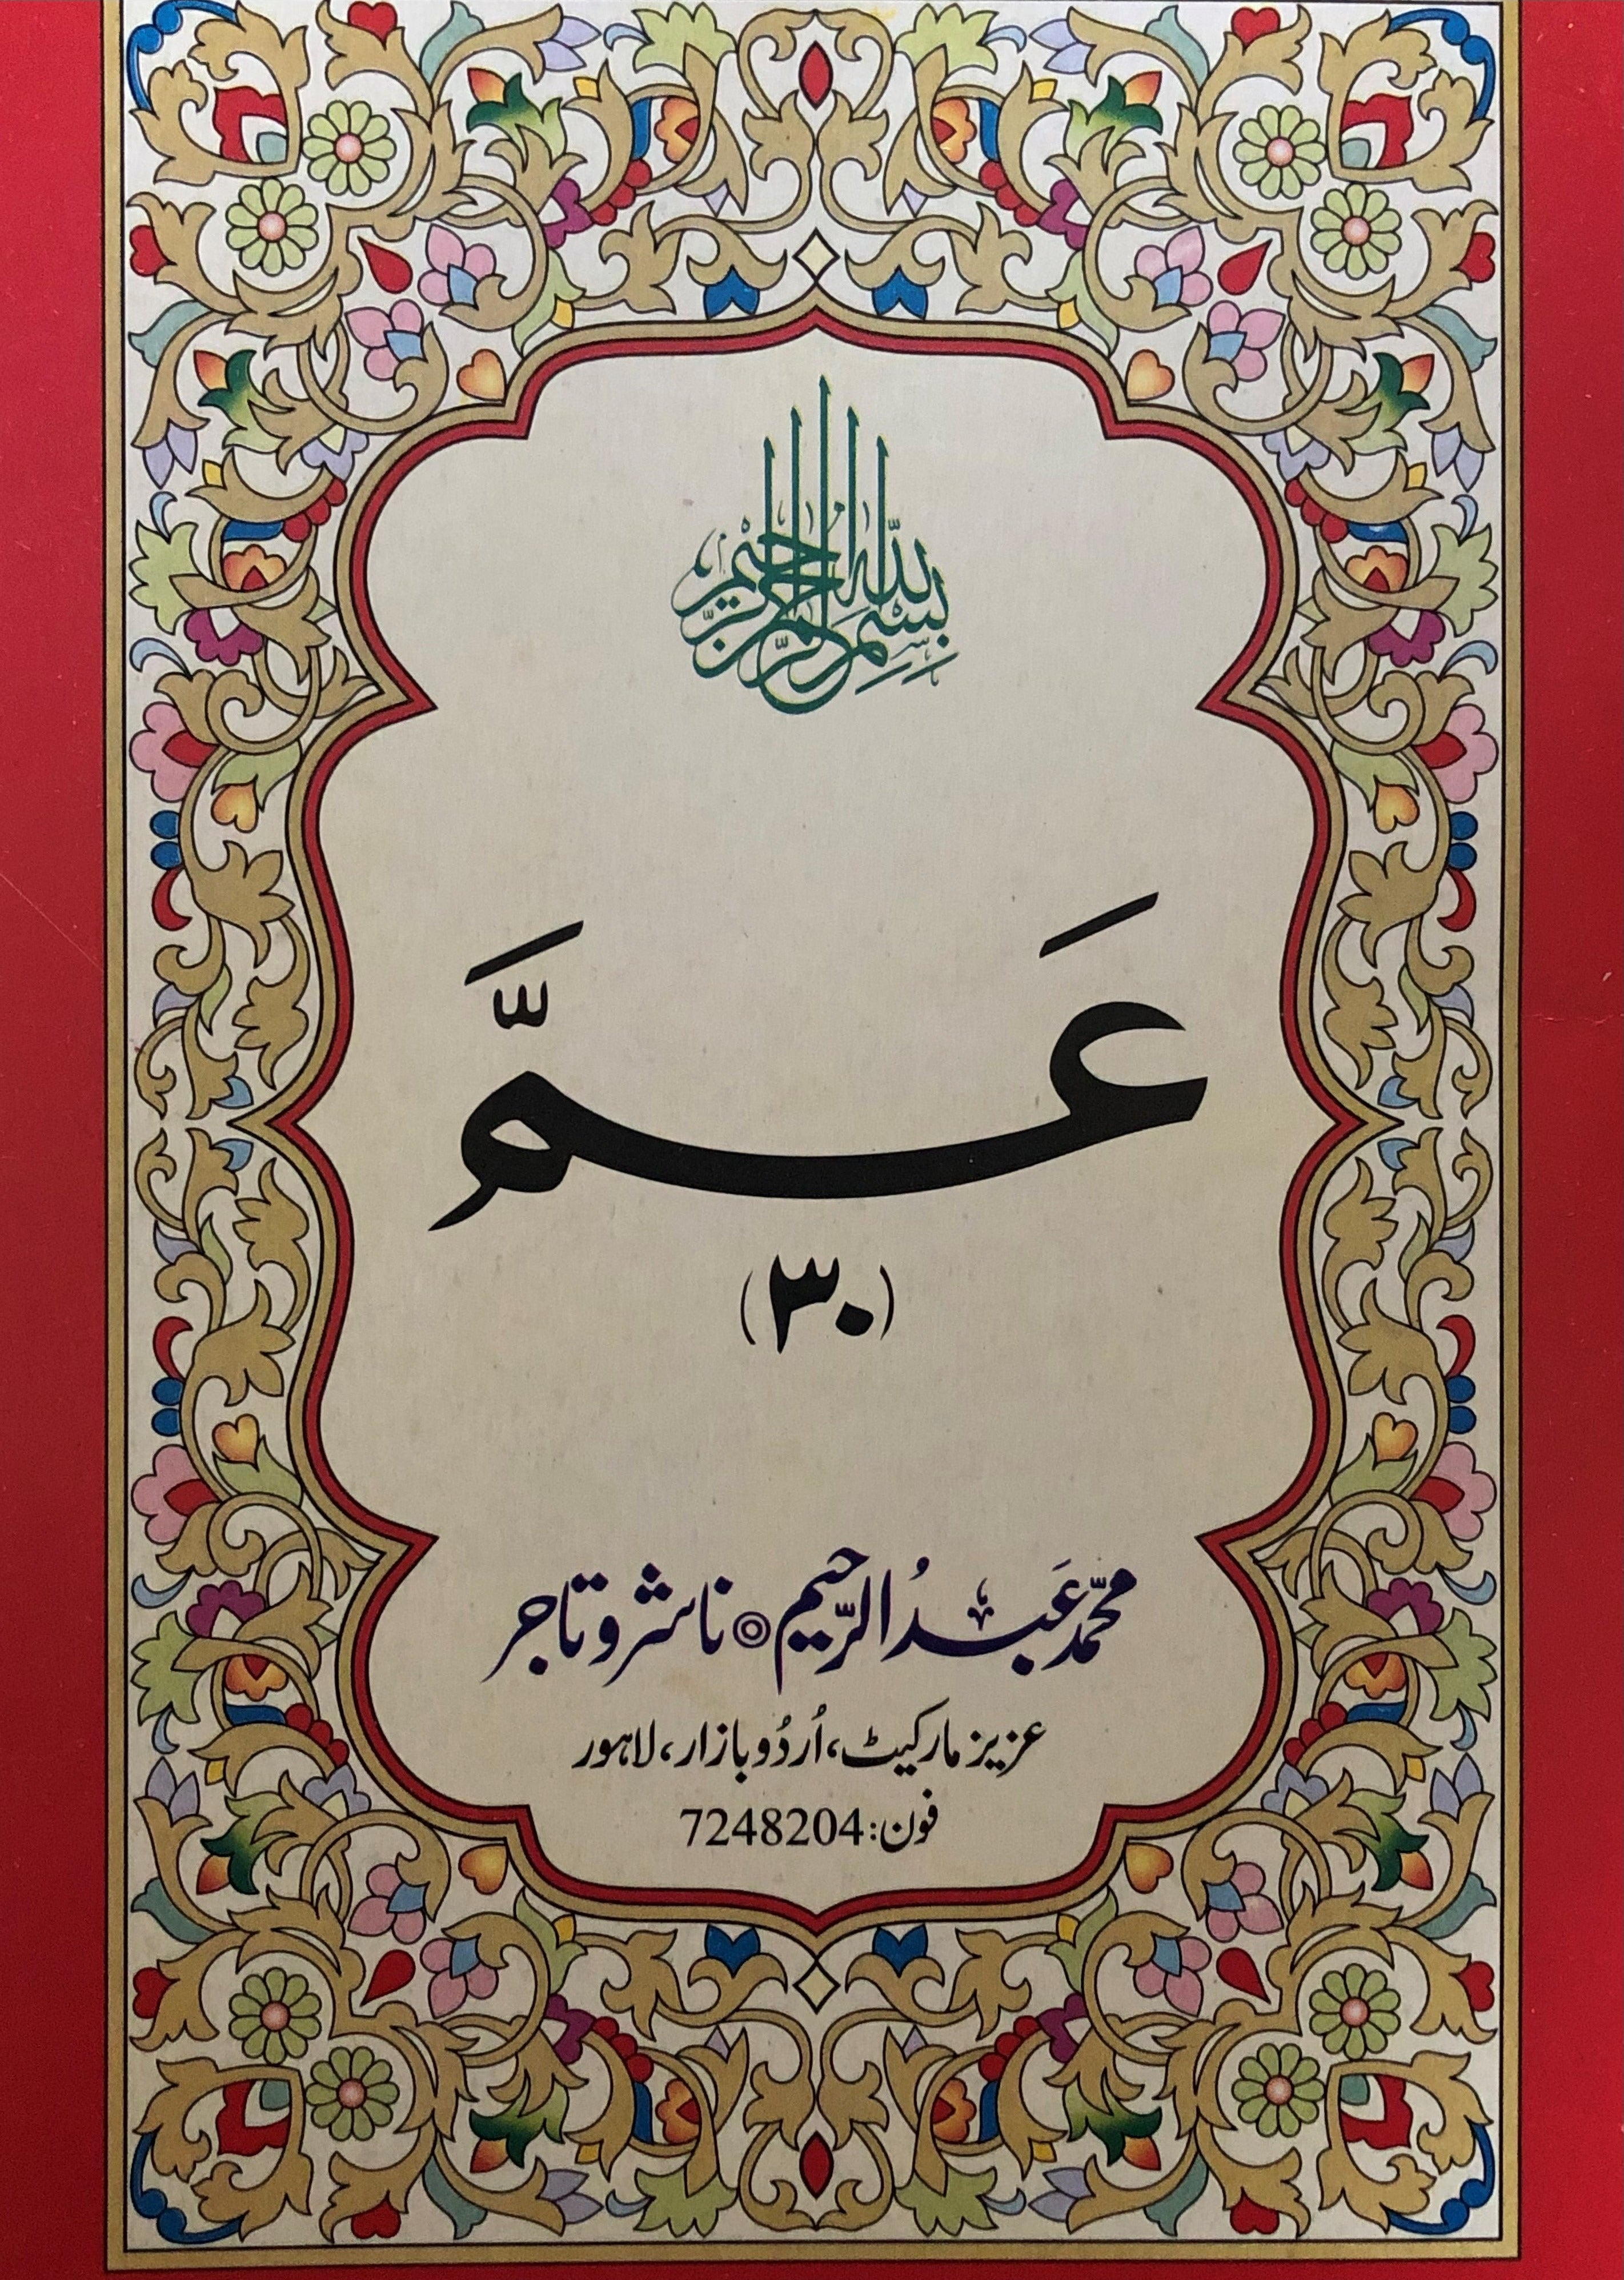 بِسْمِ اللّٰهِ الرَّحْمٰنِ الرَّحِيْمِ
عَمَّ
(٣٠)
محمّد عَبدُالرّحیم ◎ ناشر و تاجر
عزیز مارکیٹ، اُردُو بازار، لاہور
فون: 7248204